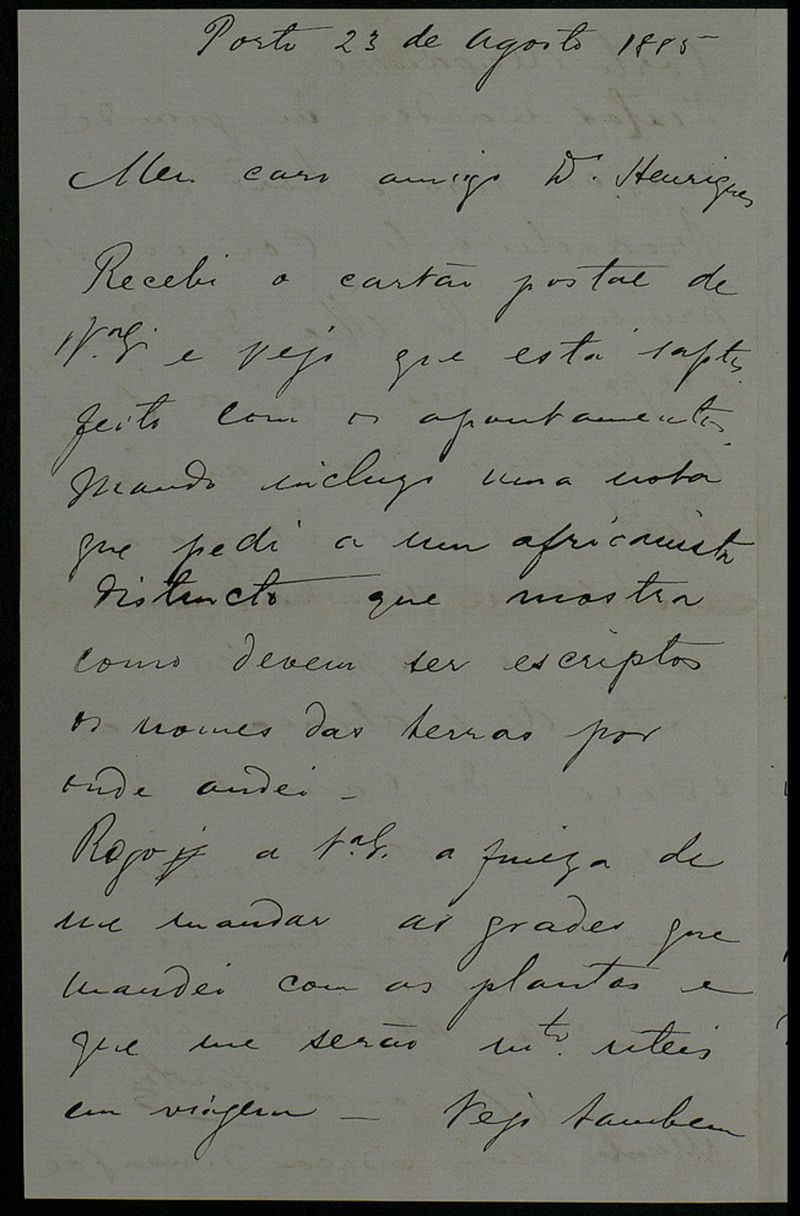 Porto 23 de Agosto 1885
Meu caro amigo Dr. Henriques
Recebi o cartão postal de
V.ª E. e vejo que está
feito com os apontamentos.
Mando incluzo uma nota
que pedi a um africanista
distincto que mostra
como devem ser escriptos
os nomes das terras por
onde andei -
Rogo a V.ª E. a fineza de
me mandar as grades que
mandei com as plantas e
que me serão m.to uteis
em viagem - Vejo tambem